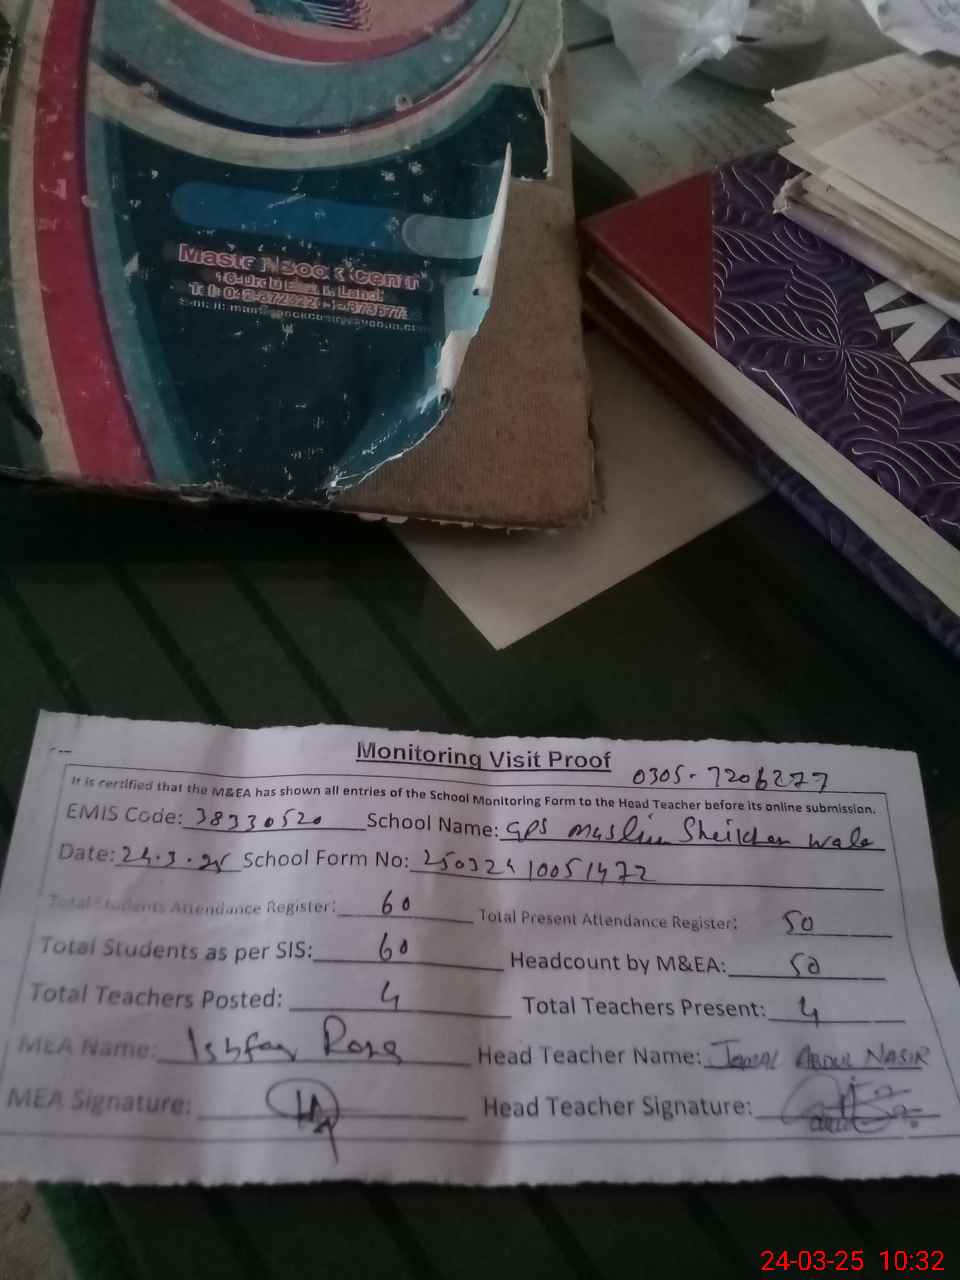 Master Book Centre
Monitoring Visit Proof
0305-7206277
It is certified that the M&EA has shown all entries of the School Monitoring Form to the Head Teacher before its online submission.
EMIS Code: 38330520 School Name: GPS Muslim Sheikhan wala
Date: 24.3.25 School Form No: 25032410051472
Total Students Attendance Register: 60 Total Present Attendance Register: 50
Total Students as per SIS: 60 Headcount by M&EA: 50
Total Teachers Posted: 4 Total Teachers Present: 4
MEA Name: Head Teacher Name: Jamal ABDUL NASIR
MEA Signature: Head Teacher Signature:
24-03-25 10:32